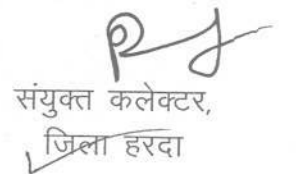 संयुक्त कलेक्टर,
जिला हरदा